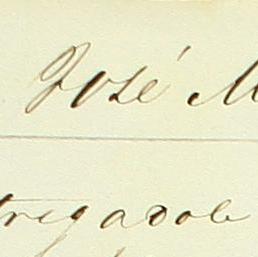 José M
tregadole